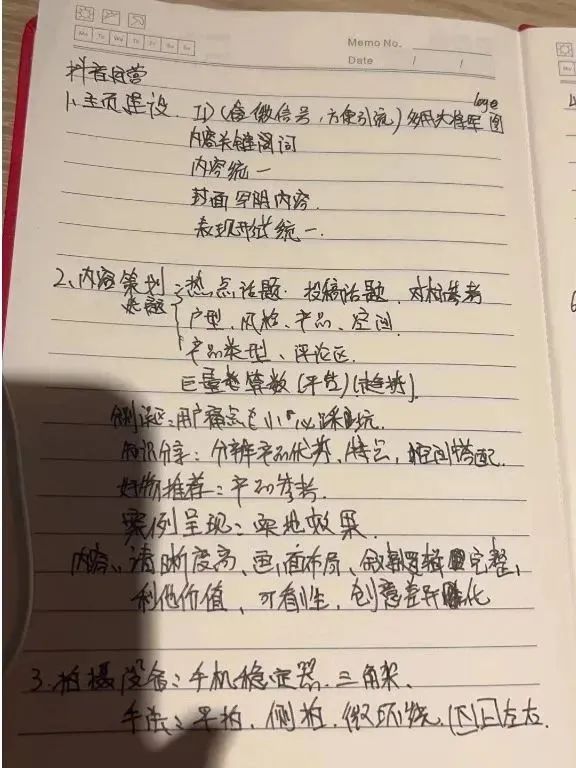 Mo Tu We Th Fr Sa Su
Memo No.
Date / /
抖音运营
loge
1、主页建设. ID(备微信号,方便引流) 图
内容关键词
内容统一
封面 内容.
表现形式统一.
2、内容策划:热点话题. 投稿话题. 对标参考
选题 户型、风格、产品、空间.
产品类型、评论区.
巨量 算数(平台)
用户痛点
知识分享:分辨产品优势、特点,空间搭配.
好物推荐:产品参考.
案例呈现:实地效果.
内容、清晰度高、画面布局、叙事逻辑完整,
利他价值、可看性、创意差异化
3.拍摄设备:手机稳定器.三角架、
手法:平拍.侧拍. 环绕. 左右.